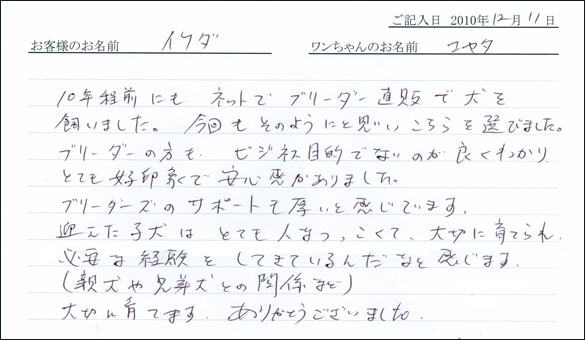 ご記入日 2010年12月11日
お客様のお名前 イケダ ワンちゃんのお名前 コヤタ
10年程前にも ネットで ブリーダー直販で犬を
飼いました。今回もそのようにと思いこちらを選びました。
ブリーダーの方も、ビジネス目的でないのが良くわかり
とても好印象で安心感がありました。
ブリーダーズのサポートも厚いと感じています。
迎えた子犬は とても人なつっこくて、大切に育てられ、
必要な経験を してきているんだなと感じます。
(親犬や兄弟犬との関係など)
大切に育てます。ありがとうございました。